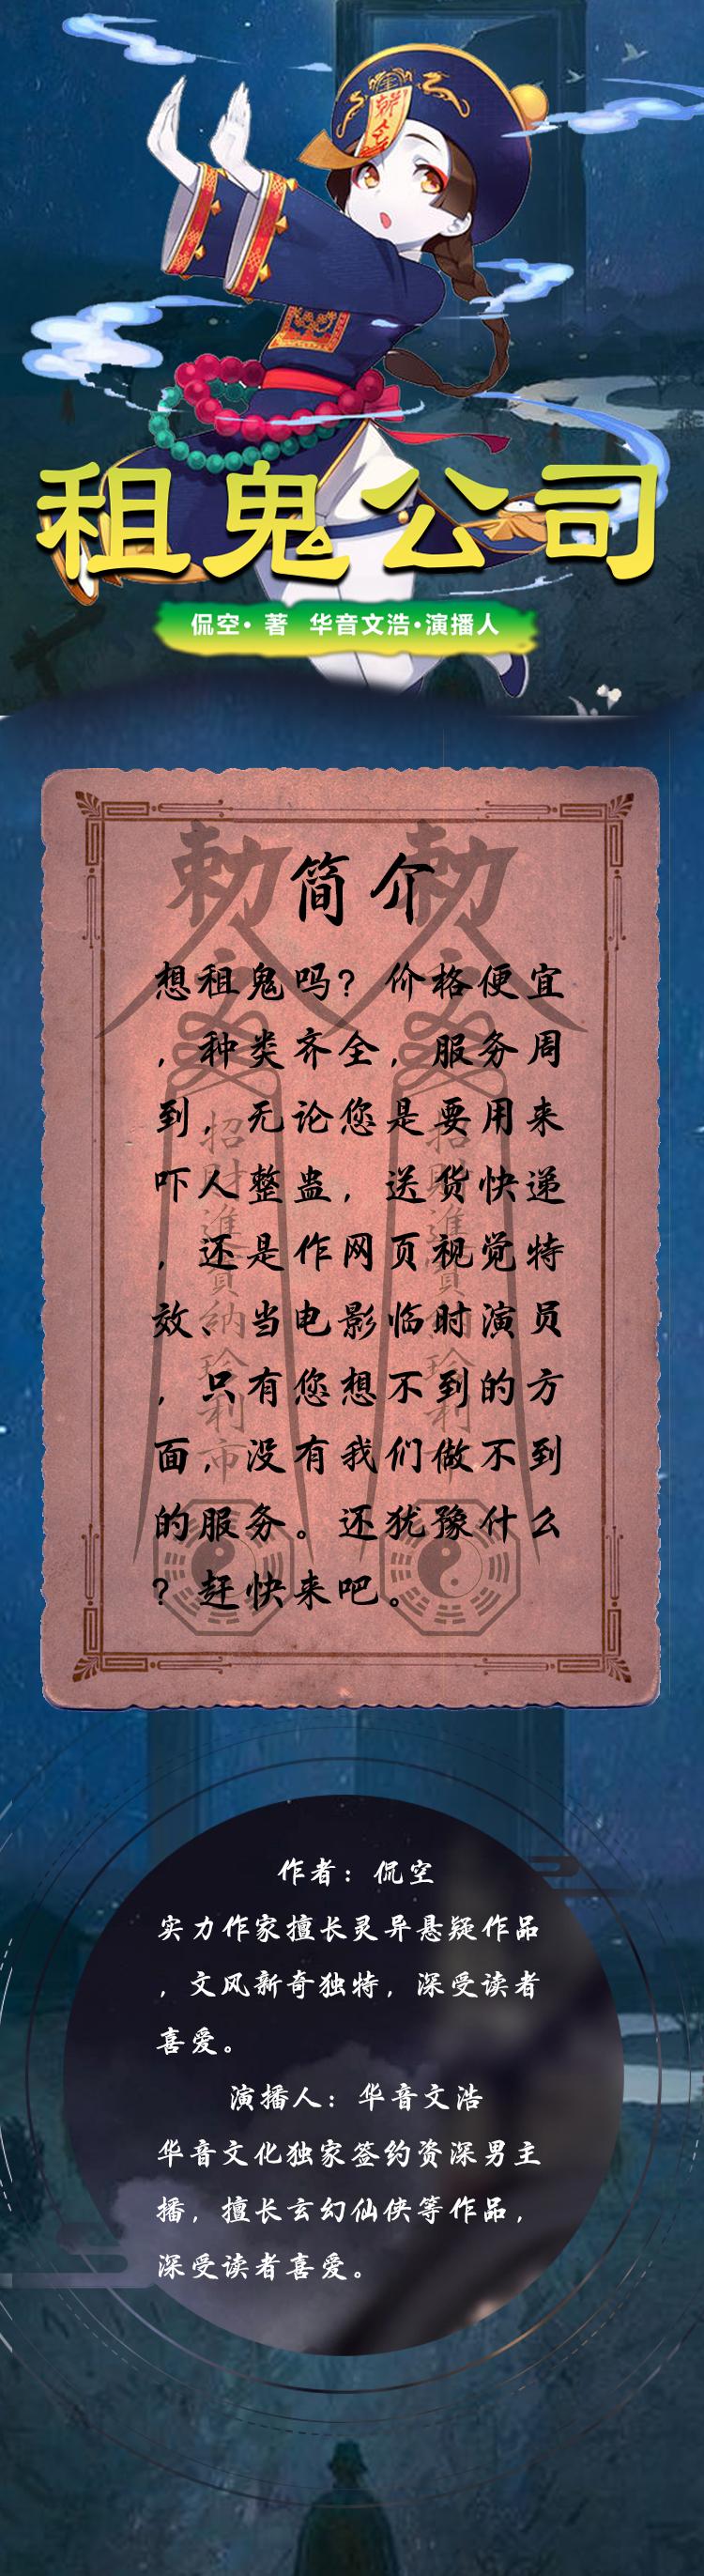 租鬼公司
侃空·著 华音文浩·演播人
简介
想租鬼吗?价格便宜
,种类齐全,服务周
到,无论您是要用来
吓人整蛊,送货快递
,还是作网页视觉特
效、当电影临时演员
,只有您想不到的方
面,没有我们做不到
的服务。还犹豫什么
?赶快来吧。
招財進寶納珍利市
招財進寶納珍利市
作者:侃空
实力作家擅长灵异悬疑作品
,文风新奇独特,深受读者
喜爱。
演播人:华音文浩
华音文化独家签约资深男主
播,擅长玄幻仙侠等作品,
深受读者喜爱。